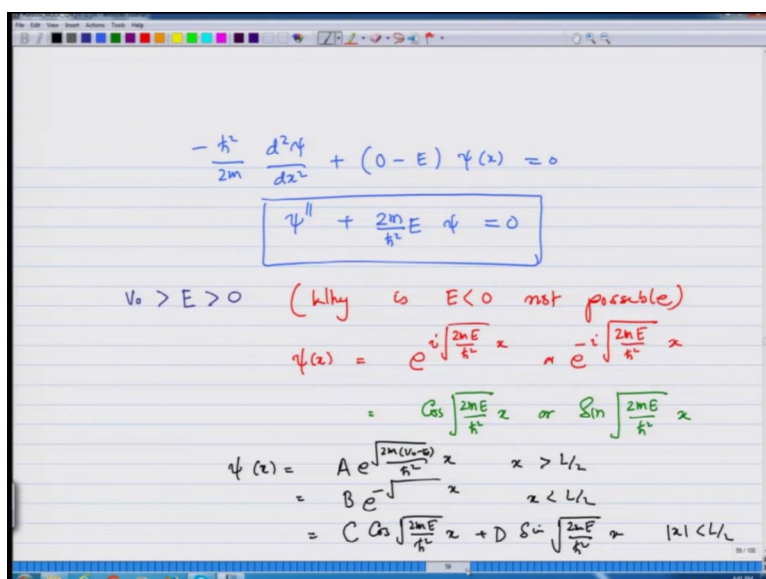 File Edit View Insert Actions Tools Help
B I
- ħ²/2m d²ψ/dx² + (0 - E) ψ(x) = 0
ψ'' + 2m/ħ² E ψ = 0
V₀ > E > 0 (Why is E < 0 not possible)
ψ(x) = e^{i√(2mE/ħ²) x} or e^{-i√(2mE/ħ²) x}
= Cos √(2mE/ħ²) x or Sin √(2mE/ħ²) x
ψ(x) = A e^{√(2m(V₀-E)/ħ²) x} x > L/2
= B e^{-√ x} x < L/2
= C Cos √(2mE/ħ²) x + D Sin √(2mE/ħ²) x |x| < L/2